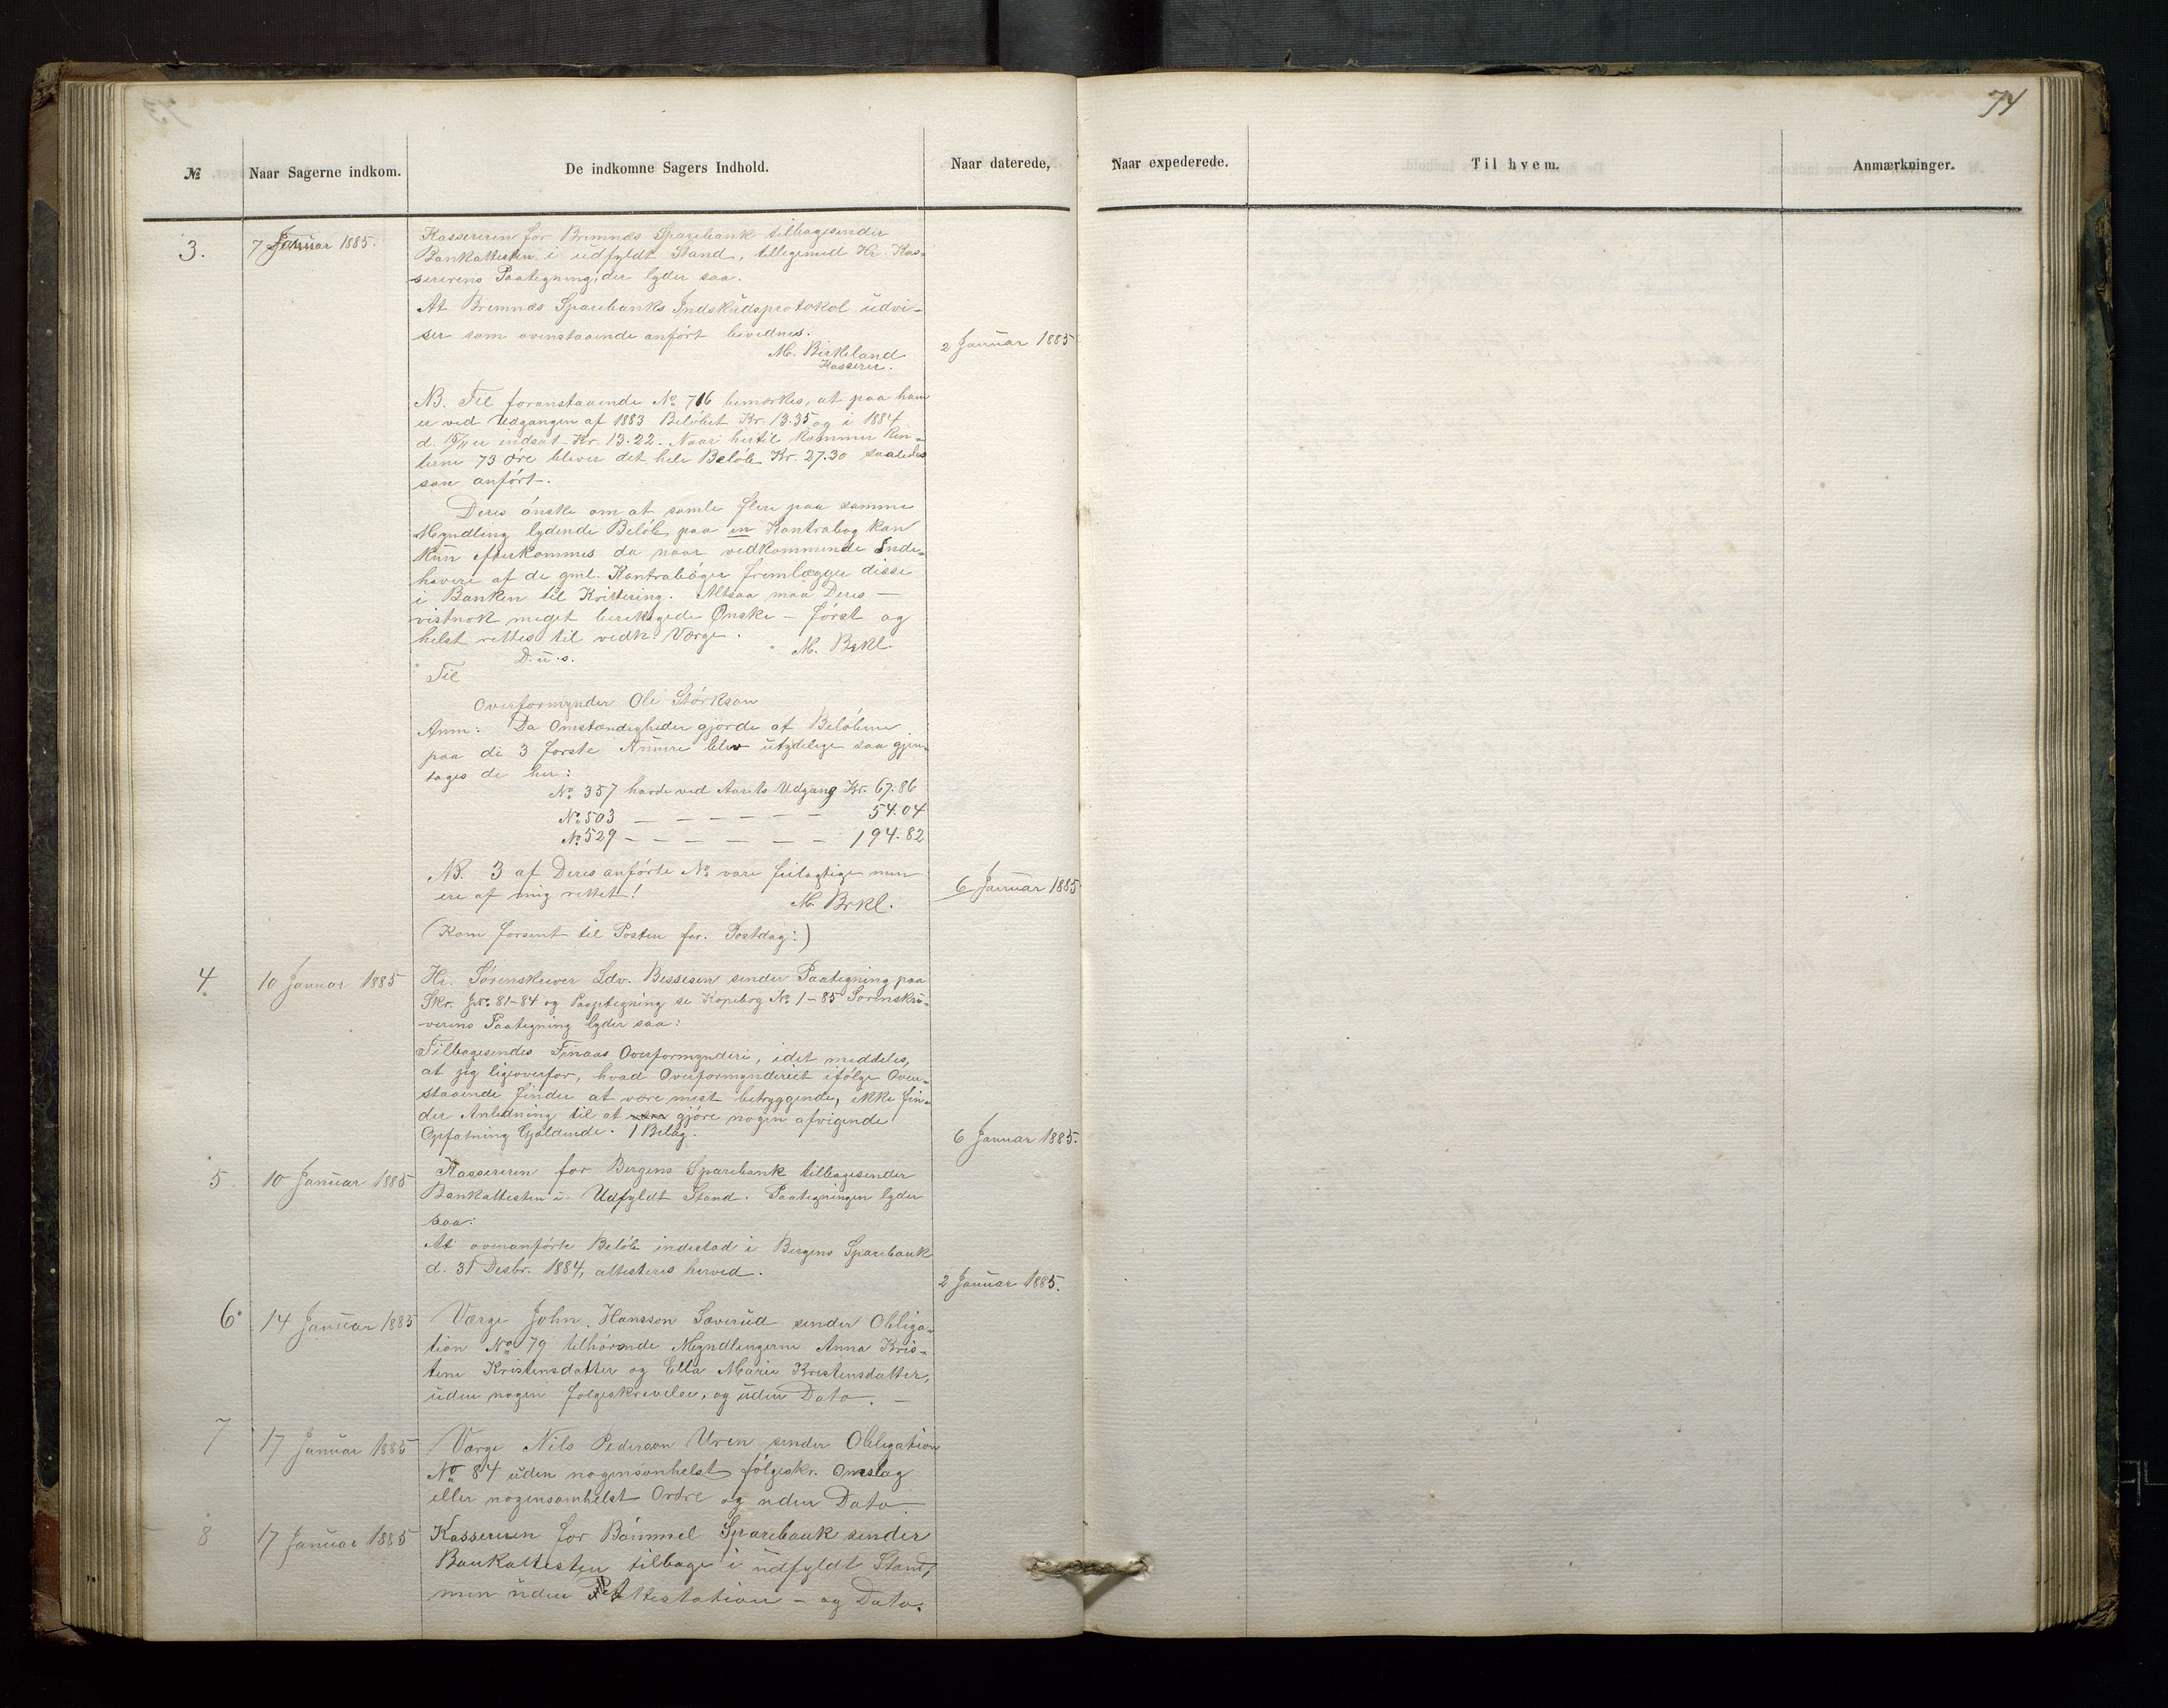 74
№ Naar Sagerne indkom. De indkomne Sagers Indhold. Naar daterede, Naar expederede. Til hvem. Anmærkninger.
3. 7 Januar 1885. Kassereren for Bremnæs Sparebank tilbagesender
Bankattesten i udfyldt Stand, tilligemed Hr. Kas-
sererens Paategning, der lyder saa.
At Bremnæs Sparebanks Indskudsprotokol udvi-
ser som ovenstaaende anført bevidnes.
M. Birkeland 2 Januar 1885
Kasserer.
NB. Til foranstaaende No 716 bemærkes, at paa ham
er ved Udgangen af 1883 Beløbet Kr. 13.35 og i 1884
d. 15/11 er indsat Kr. 13.22. Naar hertil kommer Ren-
terne 73 Øre bliver det hele Beløb Kr. 27.30 saaledes
som anført.
Deres ønske om at samle flere paa samme
Myndling lydende Beløb paa en Kontrabog kan
kun efterkommes da naar vedkommende Inde-
havere af de gml. Kontrabøger fremlægger disse
i Banken til Kvittering. Altsaa maa Deres —
vistnok meget berettigede Ønske — først og
helst rettes til vedk. Værge.
M. Brkl.
D. u. s.
Til
Overformynder Ole Størkson
Anm: Da Omstændigheder gjorde at Beløbene
paa de 3 første Numre blev utydelige saa gjen-
tages de her:
No. 357 havde ved Aarets Udgang Kr. 67.86
No. 503 — — — — — — 54.04
No. 529 — — — — — — 194.82
NB. 3 af Deres anførte No vare feilagtige men
ere af mig rettet! 6 Januar 1885
M. Brkl.
(Kom forsent til Posten for. Postdag:)
4 10 Januar 1885 Hr. Sørenskriver Ldv. Bessesen sender Paategning paa
Skr. JNo. 81-84 og Paaptegning se Kopibog No 1-85 Sorenskri-
verens Paategning lyder saa:
Tilbagesendes Finaas Overformynderi, idet meddeles,
at jeg ligeoverfor, hvad Overformynderiet ifølge Oven-
staaende finder at være mest betryggende, ikke fin-
der Anledning til at gjøre nogen afvigende
Opfatning Gjældende. 1 Bilag. 6 Januar 1885.
5. 10 Januar 1885 Kassereren for Bergens Sparebank tilbagesender
Bankattesten i Udfyldt Stand. Paategningen lyder
saa:
At ovenanførte Beløb indestod i Bergens Sparebank
d. 31 Desbr. 1884, attesteres herved. 2 Januar 1885.
6. 14 Januar 1885 Værge John Hansson Sæverud sender Obliga-
tion No 79 tilhørende Myndlingerne Anna Kris-
tine Kristensdatter og Ella Marie Kristensdatter,
uden nogen følgeskrivelse, og uden Dato. —
7 17 Januar 1885 Værge Nils Pederson Uren sender Obligation
No 84 uden nogensomhelst følgeskr. Omslag
eller nogensomhelst Ordre og uden Dato
8 17 Januar 1885 Kassereren for Bømmel Sparebank sender
Bankattesten tilbage i udfyldt Stand,
men uden Attestation — og Dato.